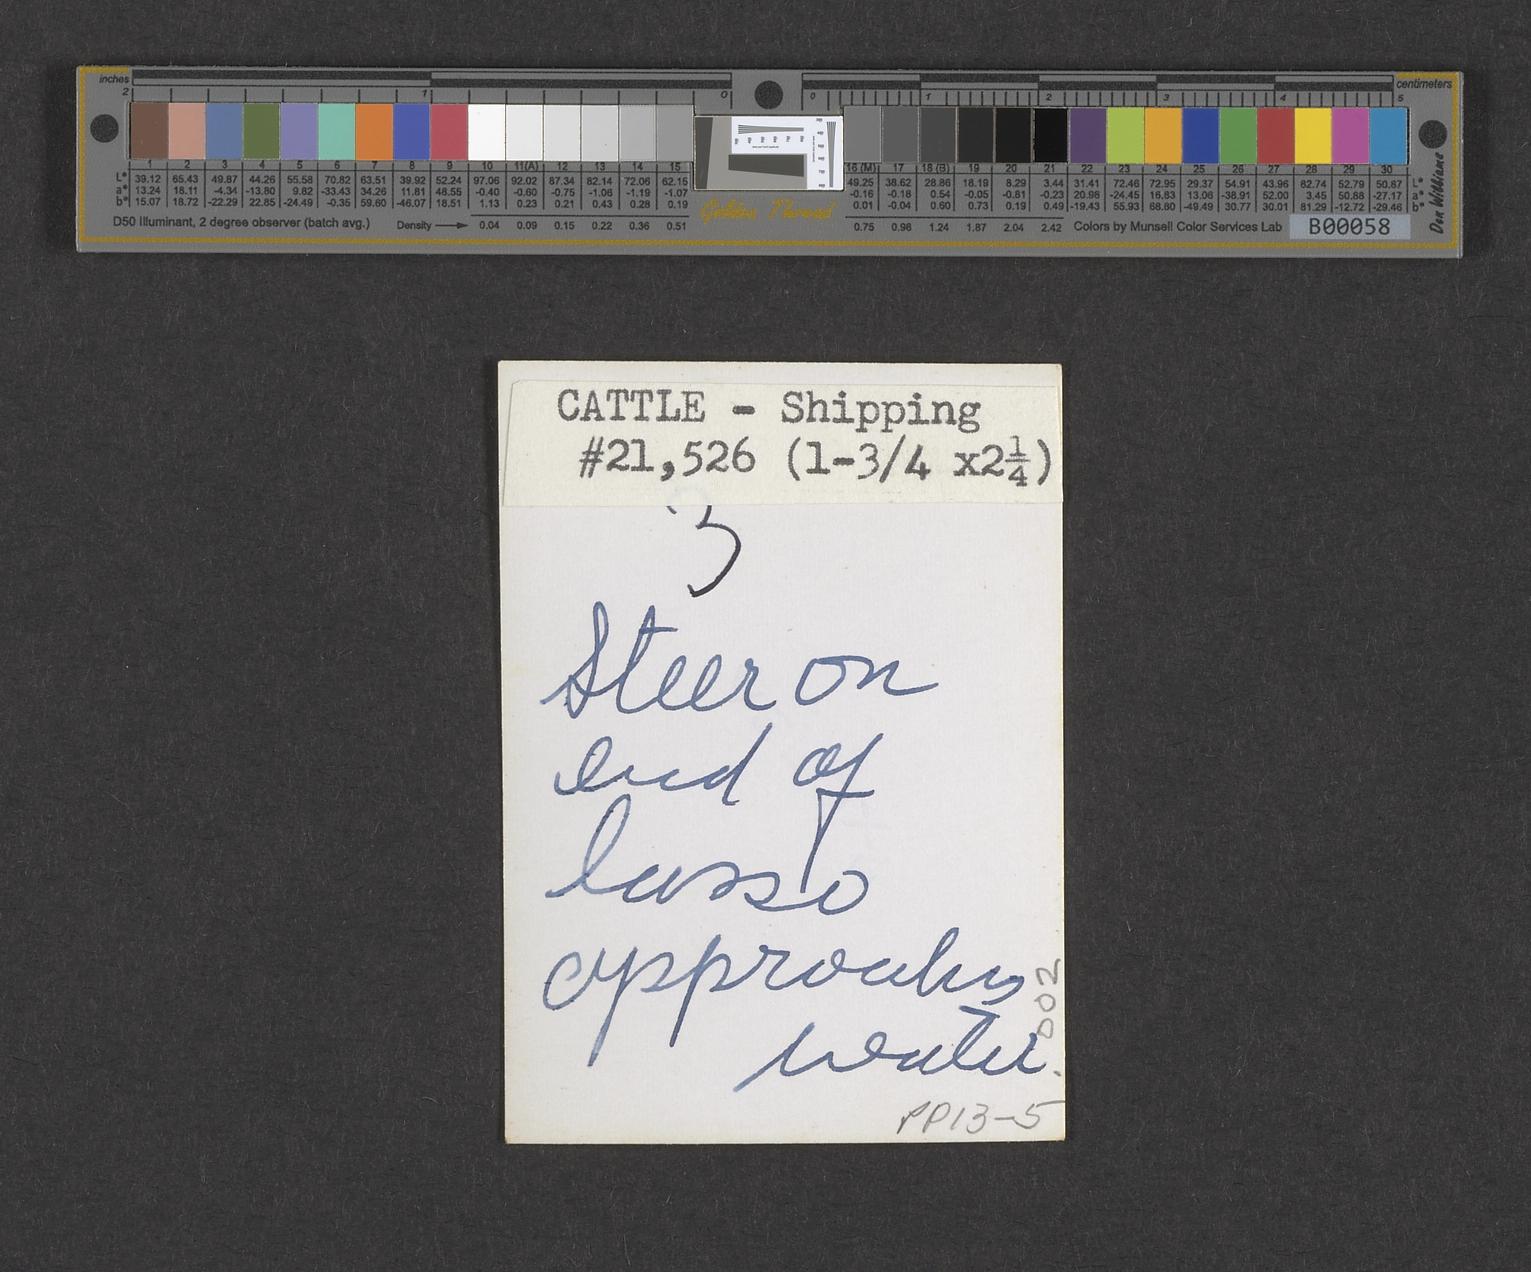 inches
centimeters
2 1 0 0 1 2 3 4 5
1 2 3 4 5 6 7 8 9 10 11(A) 12 13 14 15 16 (M) 17 18 (B) 19 20 21 22 23 24 25 26 27 28 29 30
L* 39.12 65.43 49.87 44.26 55.58 70.82 63.51 39.92 52.24 97.06 92.02 87.34 82.14 72.06 62.15 49.25 38.62 28.86 18.19 8.29 3.44 31.41 72.46 72.95 29.37 54.91 43.96 82.74 52.79 50.87 L*
a* 13.24 18.11 -4.34 -13.80 9.82 -33.43 34.26 11.81 48.55 -0.40 -0.60 -0.75 -1.06 -1.19 -1.07 -0.16 -0.18 0.54 -0.05 -0.81 -0.23 20.98 -24.45 16.83 13.06 -38.91 52.00 3.45 50.88 -27.17 a*
b* 15.07 18.72 -22.29 22.85 -24.49 -0.35 59.60 -46.07 18.51 1.13 0.23 0.21 0.43 0.28 0.19 0.01 -0.04 0.60 0.73 0.19 0.49 -19.43 55.93 68.80 -49.49 30.77 30.01 81.29 -12.72 -29.46 b*
D50 Illuminant, 2 degree observer (batch avg.) Density 0.04 0.09 0.15 0.22 0.36 0.51 Golden Thread 0.75 0.98 1.24 1.87 2.04 2.42 Colors by Munsell Color Services Lab B00058
Don Williams
CATTLE - Shipping
#21,526 (1-3/4 x2¼)
3
Steer on
end of
lasso
approaching
water.
002
PP13-5